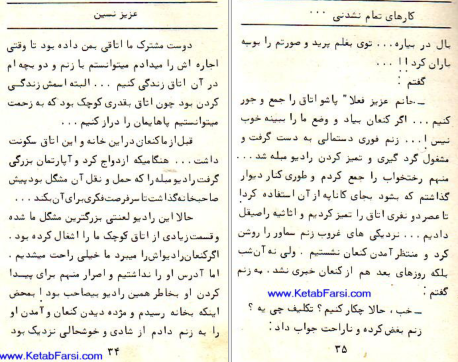 عزیز نسین
دوست مشترک ما اتاقی بمن داده بود تا وقتی
اجاره اش را میدادم میتوانستم با زنم و دو بچه ام
در آن اتاق زندگی کنیم ... البته اسمش زندگی
کردن بود چون اتاق بقدری کوچک بود که به زحمت
میتوانستیم پاهایمان را دراز کنیم ...
قبل از ما کنعان در این خانه و این اتاق سکونت
داشت ... هنگامیکه ازدواج کرد و آپارتمان بزرگی
گرفت رادیو مبله را که حمل و نقل آن مشگل بود پیش
صاحبخانه گذاشت تا سرفرصت فکری برای آن بکند ...
حالا این رادیو لعنتی بزرگترین مشگل ما شده
و قسمت زیادی از اتاق کوچک ما را اشغال کرده بود .
اگر کنعان رادیواش را میبرد ما خیلی راحت میشدیم .
اما آدرس او را نداشتیم و اصرار منهم برای پیدا
کردن او بخاطر همین رادیو بیصاحب بود ! بمحض
اینکه بخانه رسیدم و مژده دیدن کنعان و آمدن او
را به زنم دادم از شادی و خوشحالی نزدیک بود
۳۴
www.KetabFarsi.com
کارهای تمام نشدنی ...
بال در بیاره ... توی بغلم پرید و صورتم را بوسه
باران کرد !! ...
گفتم :
ـ خانم عزیز فعلا" پاشو اتاق را جمع و جور
کنیم ... اگر کنعان بیاد و وضع ما را ببینه خوب
نیس ! ... زنم فوری دستمالی به دست گرفت و
مشغول گرد گیری و تمیز کردن رادیو مبله شد ...
منهم رختخواب را جمع کردم و طوری کنار دیوار
گذاشتم که بشود بجای کاناپه از آن استفاده کرد!
تا عصر دو نفری اتاق را تمیز کردیم و اثاثیه را صیقل
دادیم ... نردیکی های غروب زنم سماور را روشن
کرد و منتظر آمدن کنعان نشستیم . ولی نه آنشب
بلکه روزهای بعد هم از کنعان خبری نشد . به زنم
گفتم :
ـ خب ، حالا چکار کنیم ؟ تکلیف چی یه ؟
زنم بغض کرده و ناراحت جواب داد :
۳۵
www.KetabFarsi.com